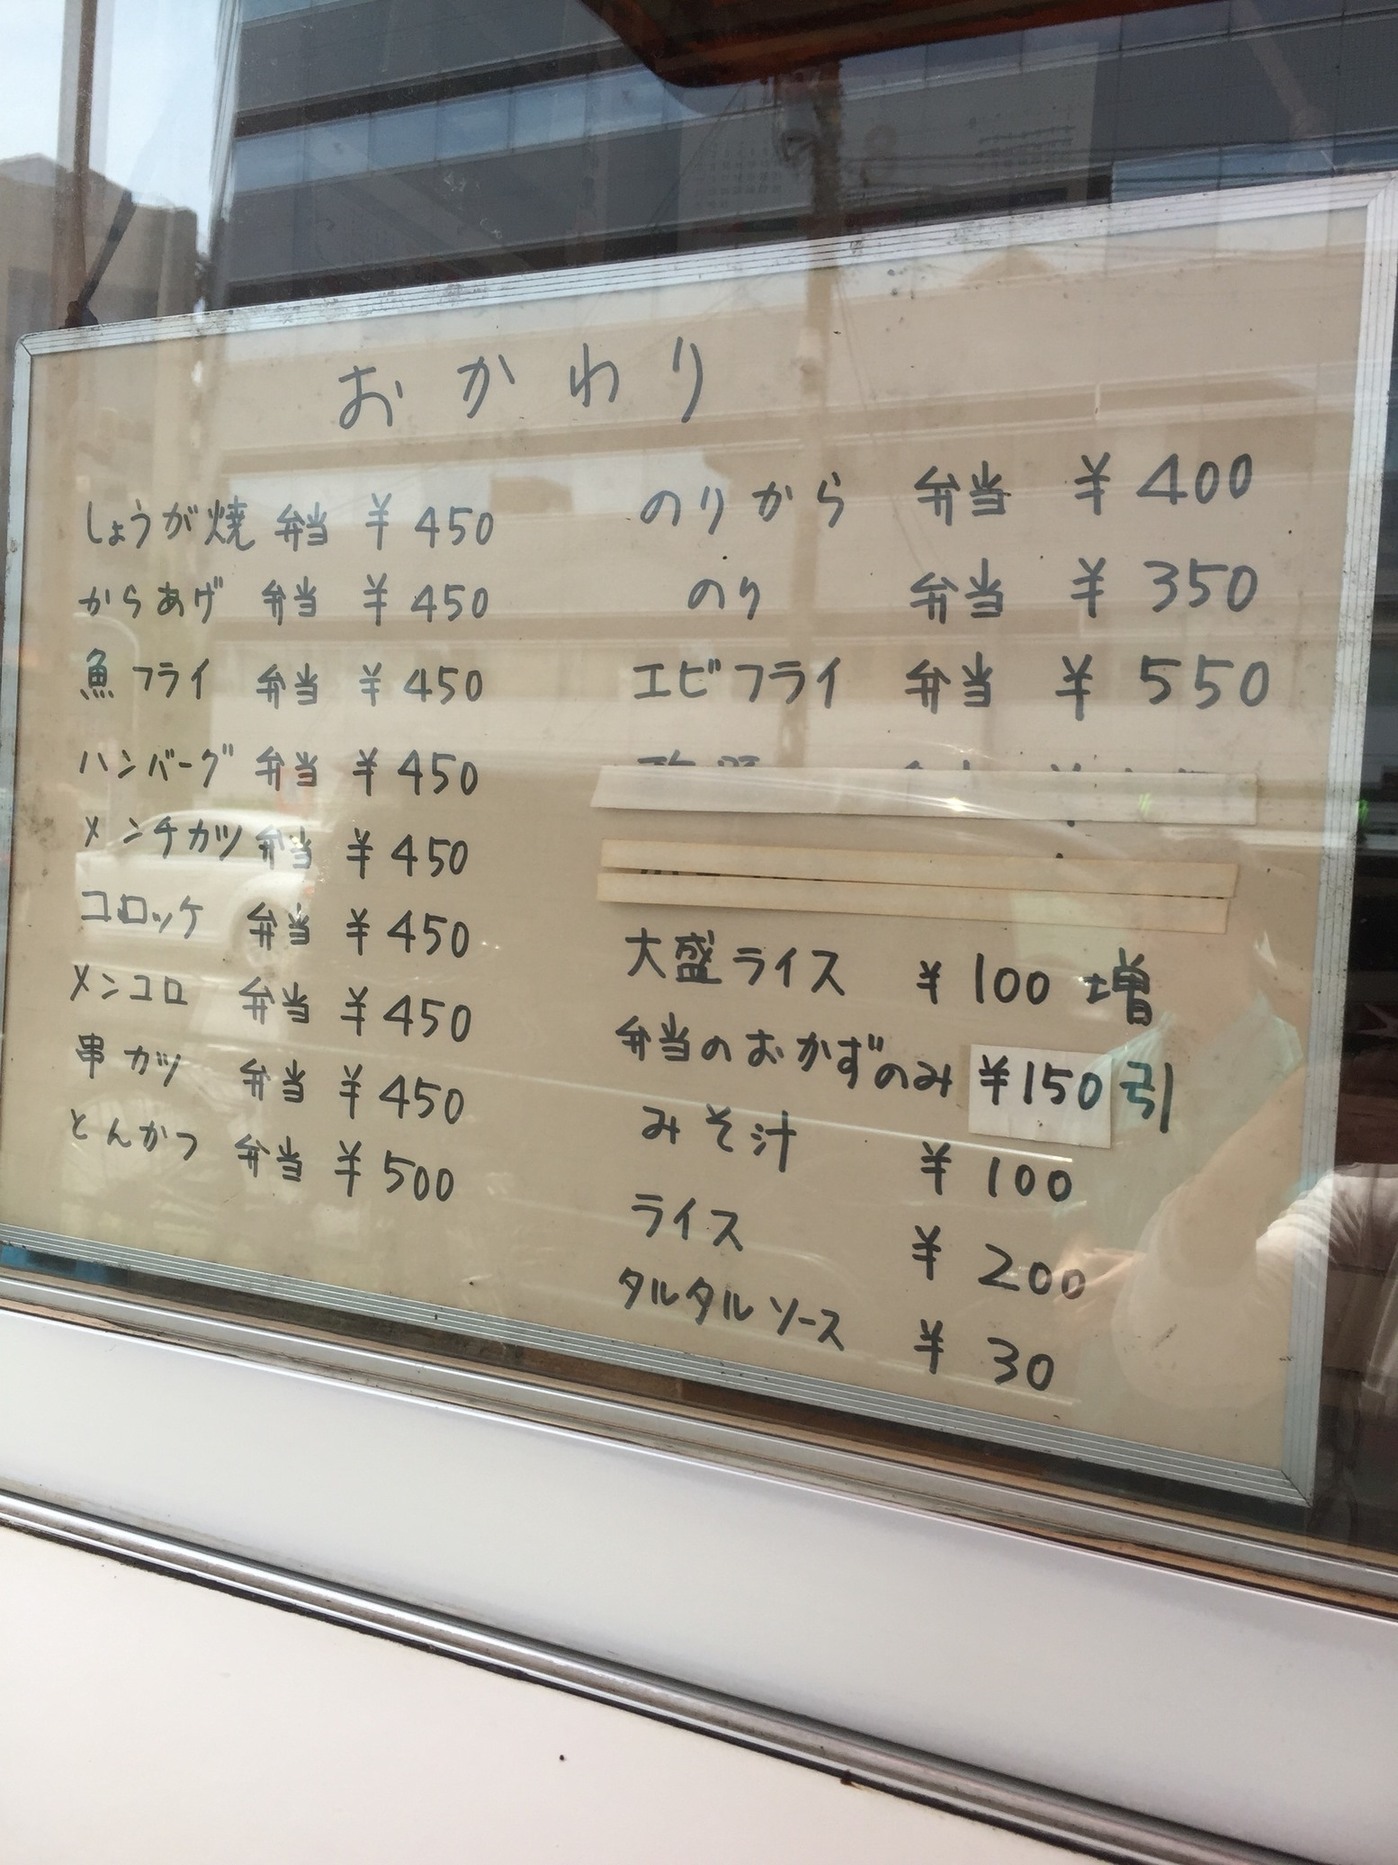 おかわり
しょうが焼 弁当 ¥450
からあげ 弁当 ¥450
魚フライ 弁当 ¥450
ハンバーグ 弁当 ¥450
メンチカツ 弁当 ¥450
コロッケ 弁当 ¥450
メンコロ 弁当 ¥450
串カツ 弁当 ¥450
とんかつ 弁当 ¥500
のりから 弁当 ¥400
のり 弁当 ¥350
エビフライ 弁当 ¥550
大盛ライス ¥100増
弁当のおかずのみ ¥150引
みそ汁 ¥100
ライス ¥200
タルタルソース ¥30